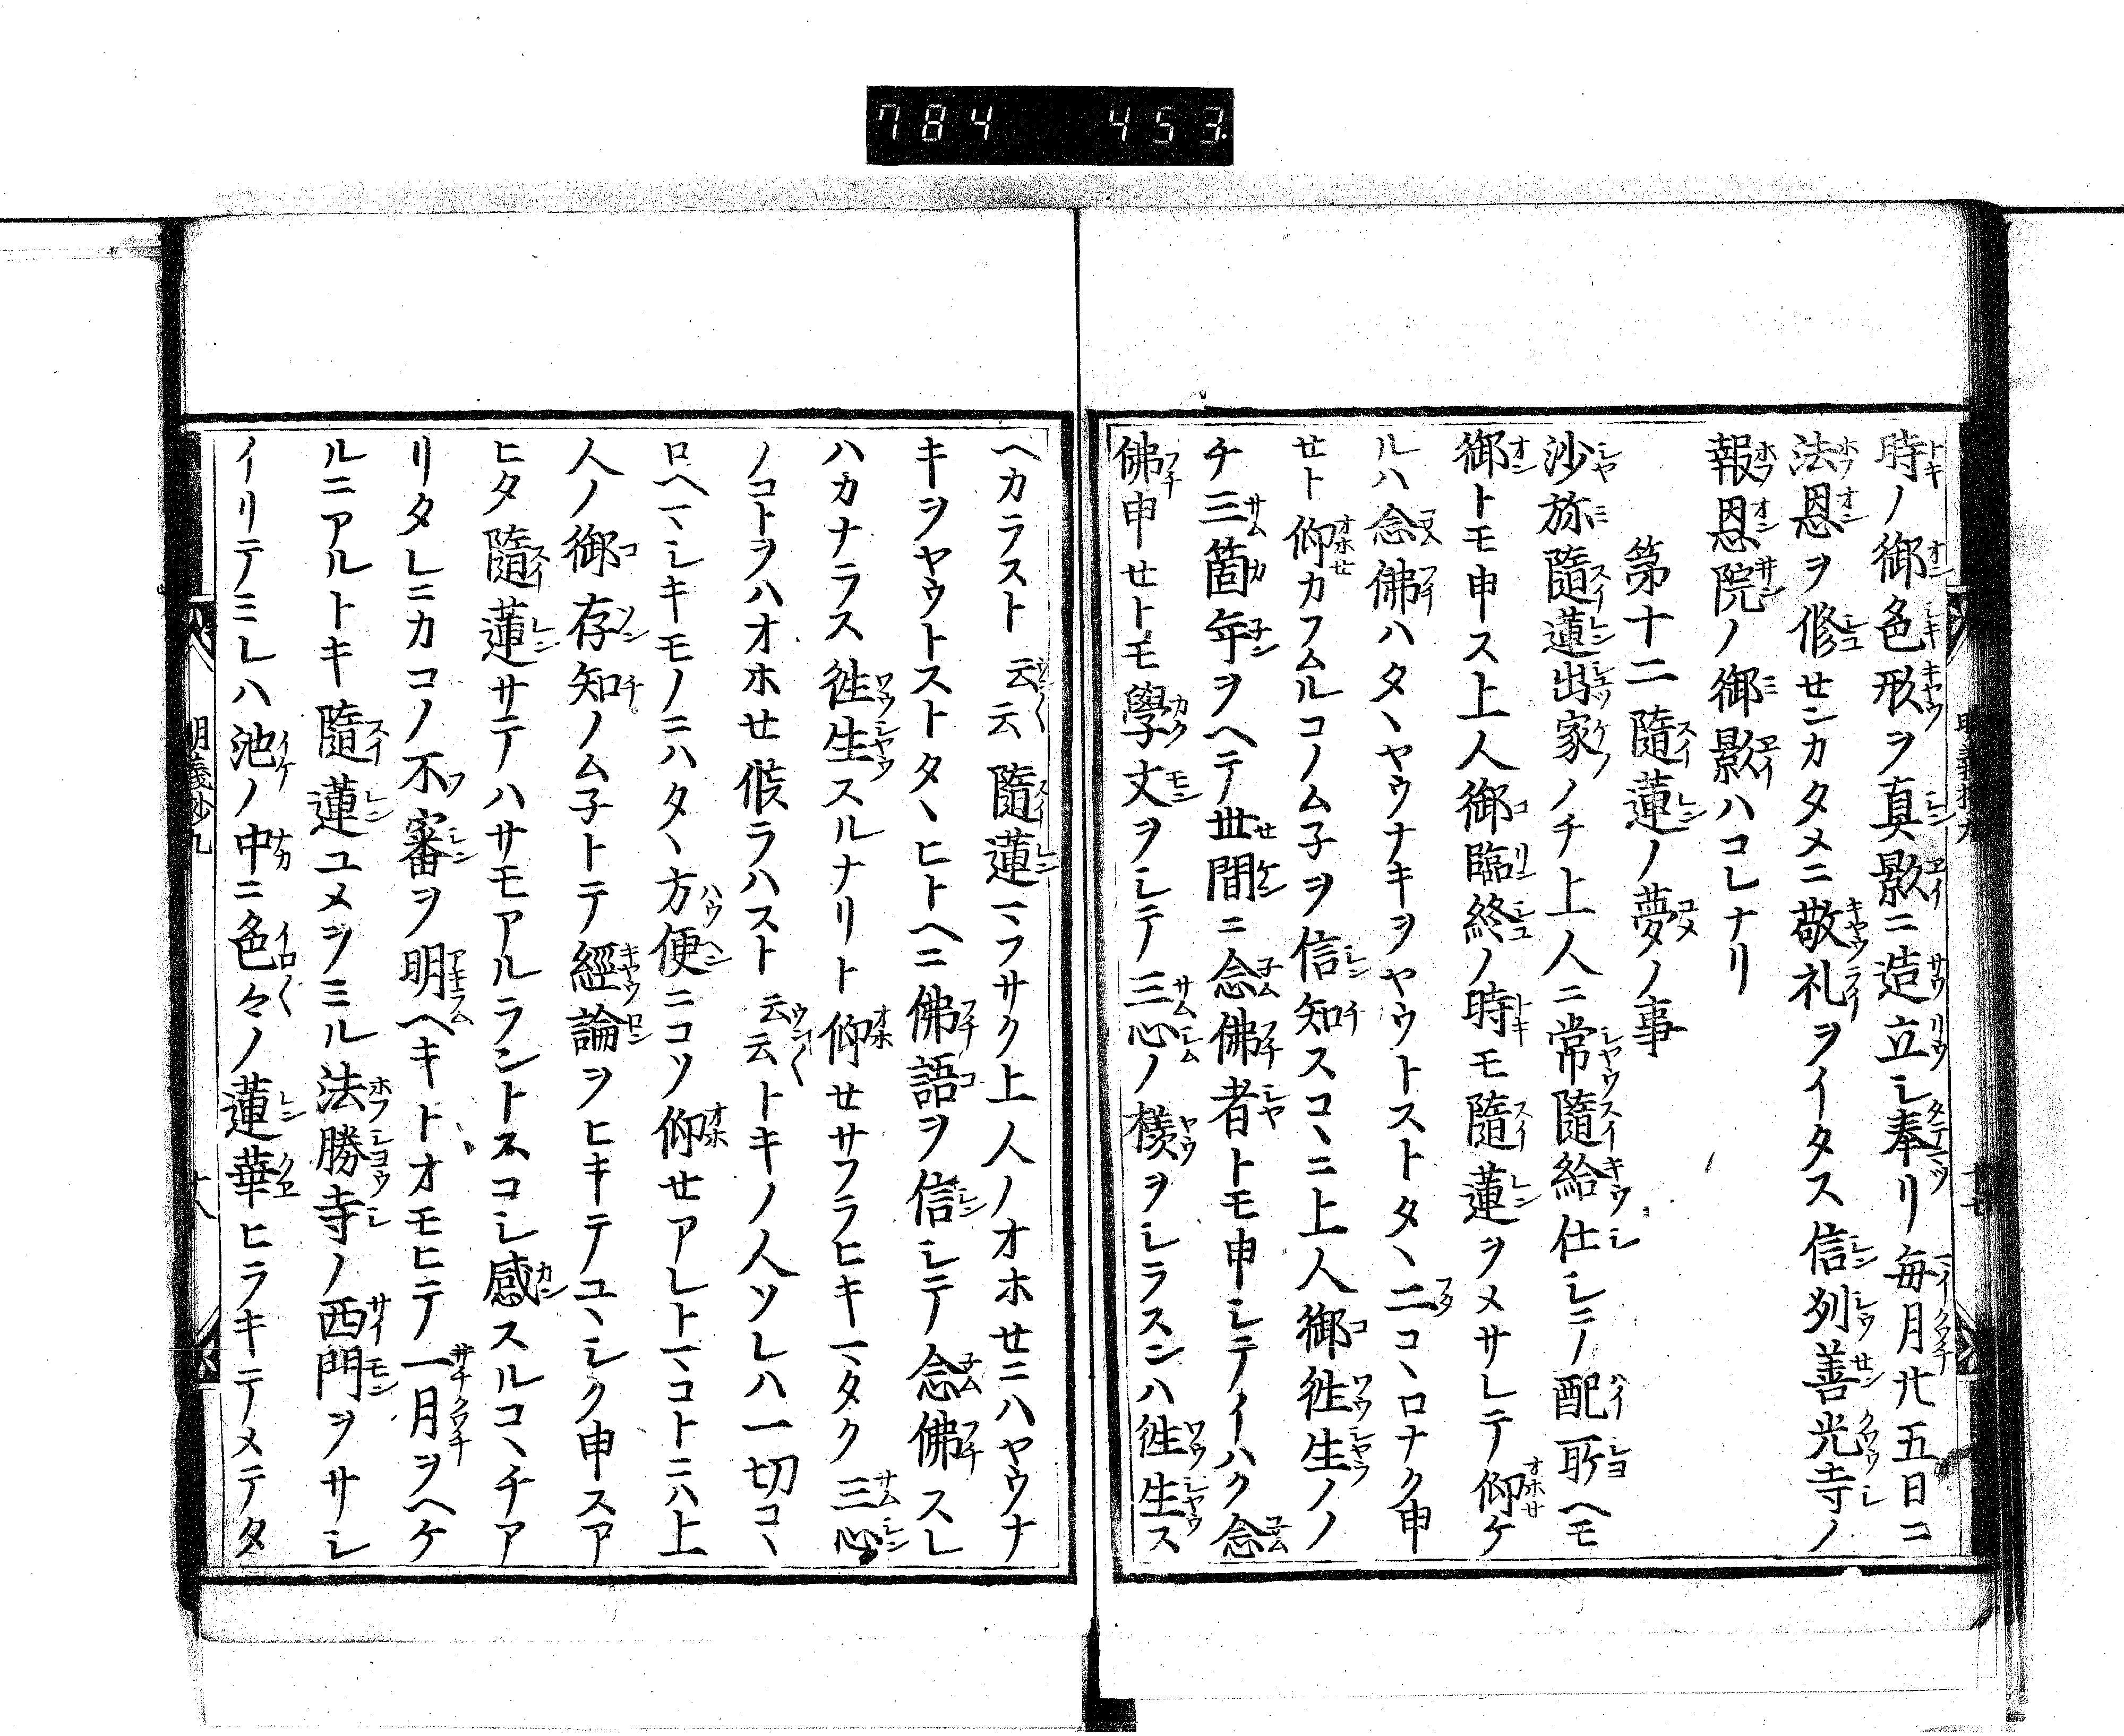 784 453
時ノ御色形ヲ真影ニ造立シ奉リ毎月廿五日ニ
法恩ヲ修センカタメニ敬礼ヲイタス信列善光寺ノ
報恩院ノ御影ハコレナリ
第十二隨蓮ノ夢ノ事
沙弥隨蓮出家ノチ上人ニ常隨給仕シニノ配所ヘモ
御トモ申ス上人御臨終ノ時モ隨蓮ヲメサレテ仰ケ
ルハ念佛ハタヽヤウナキヲヤウトストタヽ二コヽロナク申
セト仰カフムルコノム子ヲ信知スコヽニ上人御徃生ノノ
チ三箇年ヲヘテ世間ニ念佛者トモ申シテイハク念
佛申セトモ學文ヲシテ三心ノ様ヲシラスンハ徃生ス
ヘカラスト云云隨蓮マフサク上人ノオホセニハヤウナ
キヲヤウトストタヽヒトヘニ佛語ヲ信シテ念佛スレ
ハカナラス徃生スルナリト仰セサフラヒキマタク三心
ノコトヲハオホセ候ラハスト云云トキノ人ソレハ一切コヽ
ロヘマシキモノニハタヽ方便ニコソ仰セアレトマコトニハ上
人ノ御存知ノム子トテ經論ヲヒキテユヽシク申スア
ヒタ隨蓮サテハサモアルラントスコシ感スルコヽチア
リタレニカコノ不審ヲ明ヘキトオモヒテ一月ヲヘケ
ルニアルトキ隨蓮ユメヲミル法勝寺ノ西門ヲサシ
イリテミレハ池ノ中ニ色々ノ蓮華ヒラキテメテタ
明義抄九
十八